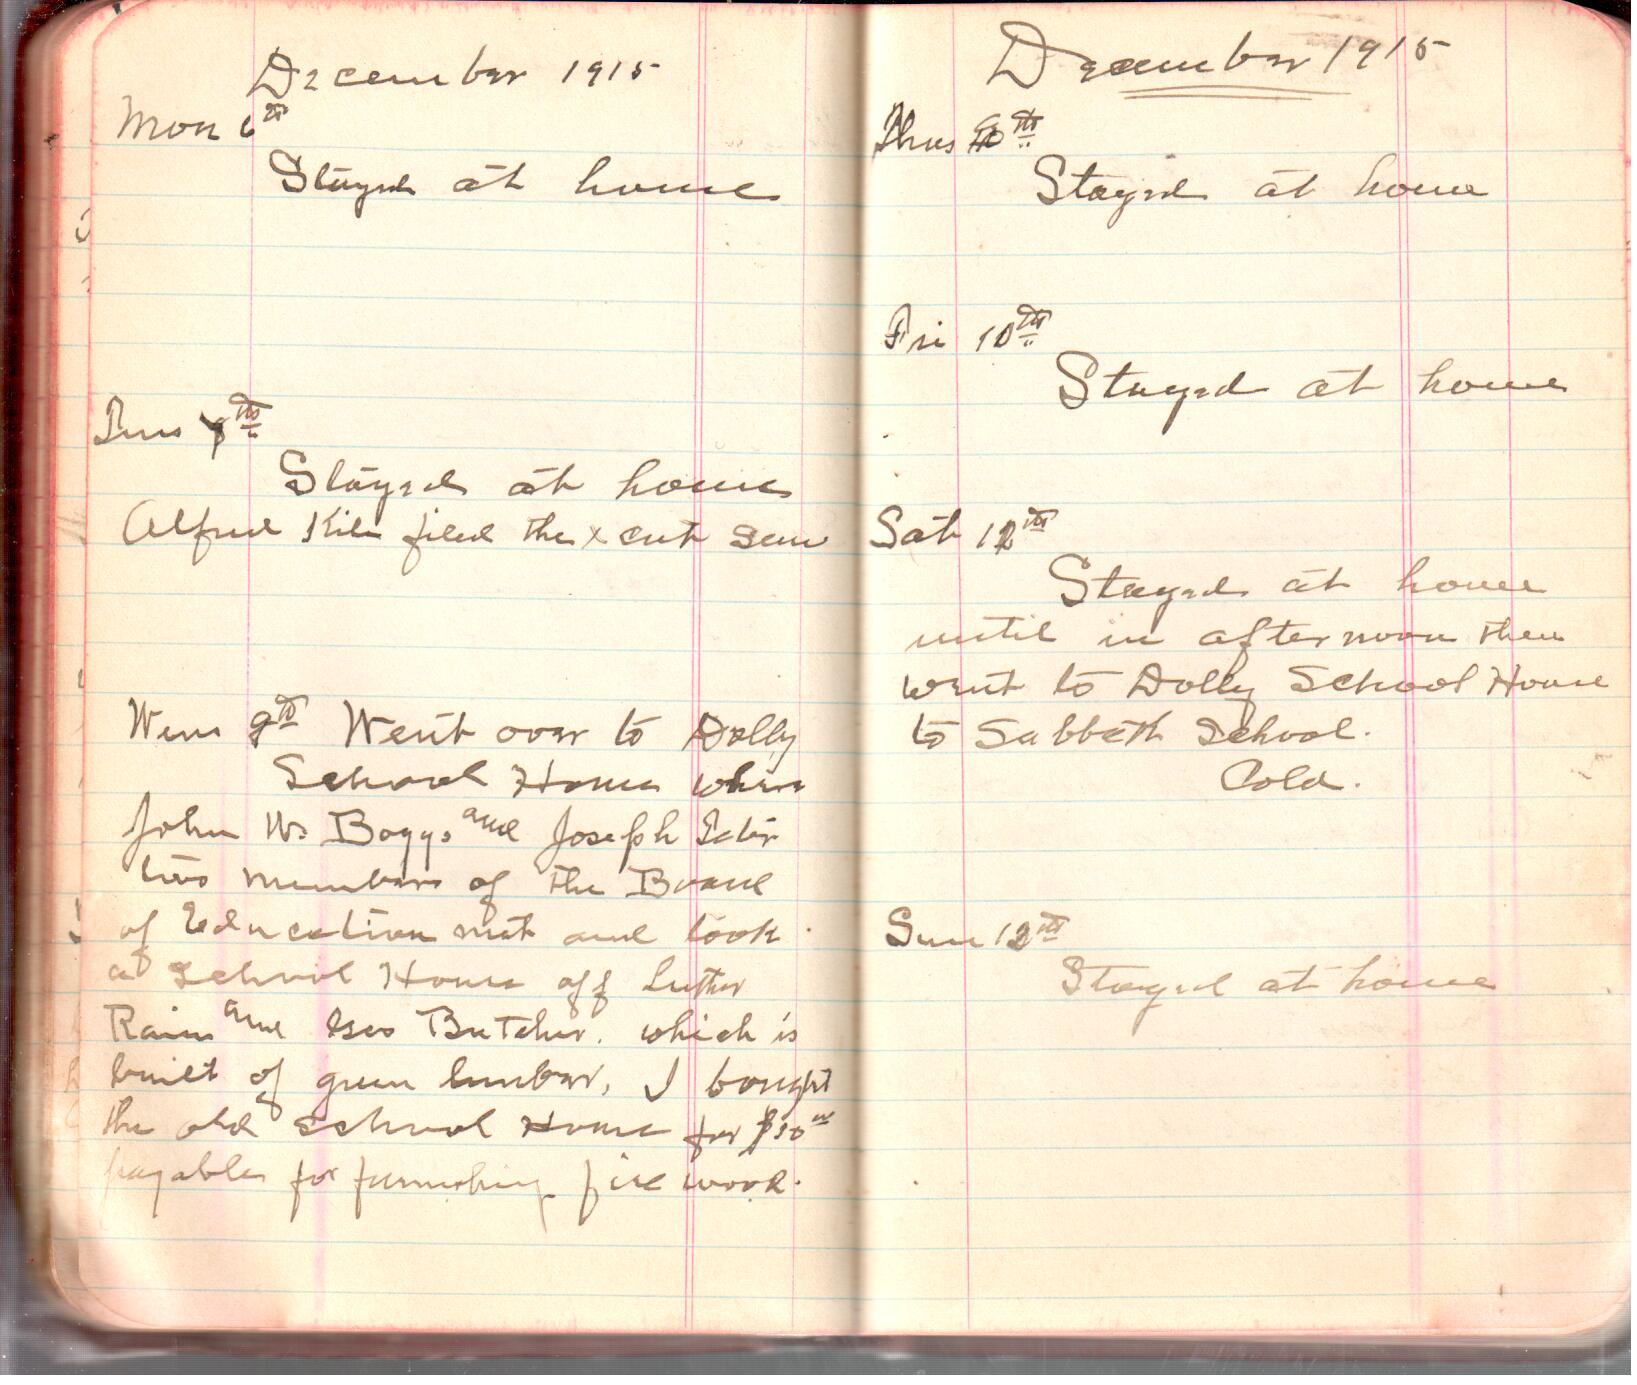 December 1915
Mon 6th
Stayed at home
Tues 7th
Stayed at home
Alfred Kile filed the x cut saw
Wens 8th Went over to Dolly
School House where
John W. Boggs and Joseph Teter
two members of the Board
of Education met and took
a School House off Luther
Raines and Geo Butcher. which is
built of green lumber, I bought
the old School House for $10.00
payable for furnishing fire wood.
December 1915
Thus 9th
Stayed at home
Fri 10th
Stayed at home
Sat 12th
Stayed at home
until in afternoon then
went to Dolly School House
to Sabbath School.
Cold.
Sun 12th
Stayed at home